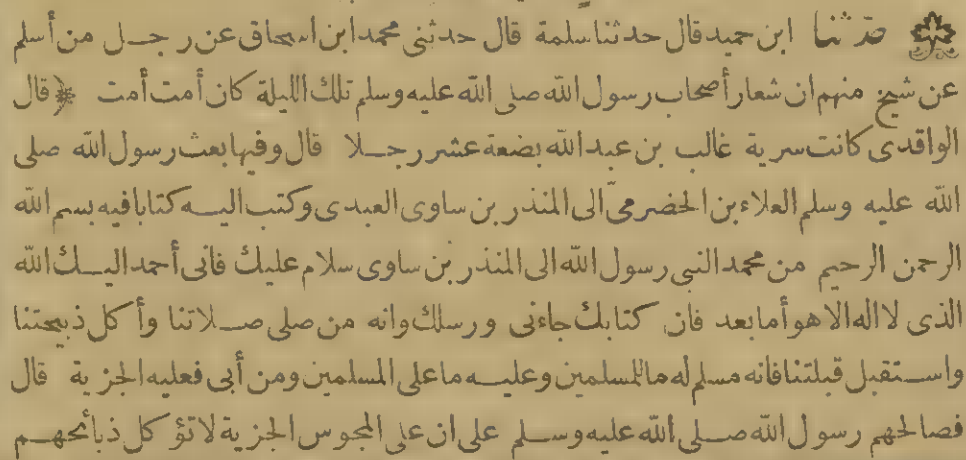 حدثنا ابن حميد قال حدثنا سلمة قال حدثنى محمد ابن اسحاق عن رجل من أسلم
عن شيخ منهم ان شعار أصحاب رسول الله صلى الله عليه وسلم تلك الليلة كان أمت أمت قال
الواقدى كانت سرية غالب بن عبد الله بضعة عشر رجلا قال وفيها بعث رسول الله صلى
الله عليه وسلم العلاء بن الحضرمىّ الى المنذر بن ساوى العبدى وكتب اليه كتابا فيه بسم الله
الرحمن الرحيم من محمد النبي رسول الله الى المنذر بن ساوى سلام عليك فانى أحمد اليك الله
الذى لا اله الا هو أما بعد فان كتابك جاءنى ورسلك وانه من صلى صلاتنا وأكل ذبيحتنا
واستقبل قبلتنا فانه مسلم له ما للمسلمين وعليه ما على المسلمين ومن أبى فعليه الجزية قال
فصالحهم رسول الله صلى الله عليه وسلم على ان على المجوس الجزية لا تؤكل ذبائحهم